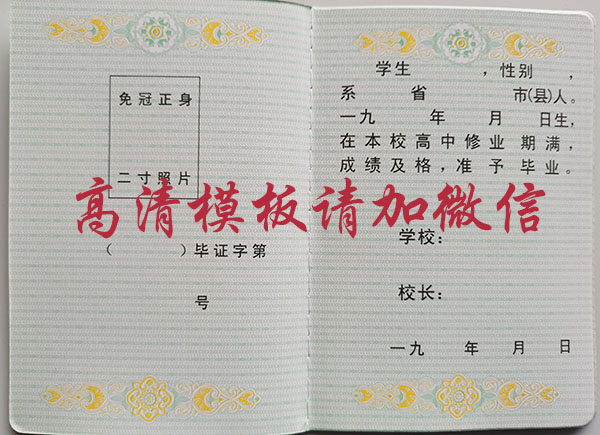 免冠正身
二寸照片
（ ）毕证字第
号
学生 ，性别 ，
系 省 市(县)人。
一九 年 月 日生，
在本校高中修业 期满，
成绩及格，准 予 毕业。
学校：
校长：
一九 年 月 日
高清模板请加微信